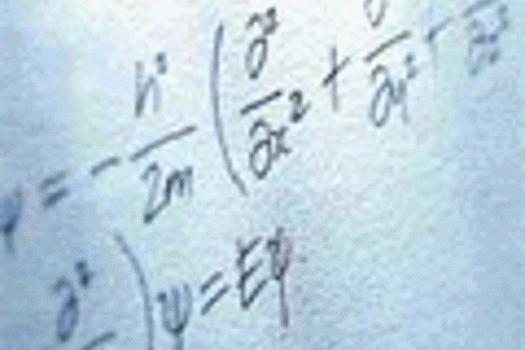 ψ = - h²/2m ( ∂²/∂x² + ∂/∂y² + ∂²
∂² ) ψ = Eψ